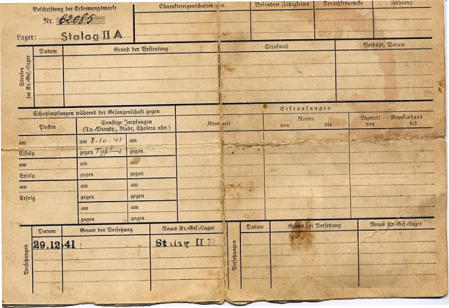 Beschriftung der Erkennungsmarke
Nr. 62085
Lager: Stalag II A
Charaktereigenschaften
Besondere Fähigkeiten
Sprachkenntnisse
Führung
Strafen im Kr.-Gef.-Lager
Datum Grund der Bestrafung Strafmaß Verbüßt, Datum
Schutzimpfungen während der Gefangenschaft gegen
Erkrankungen
Pocken
Sonstige Impfungen
(Ty.-Paraty., Ruhr, Cholera usw.)
Krankheit
Revier
von bis
Lazarett — Krankenhaus
von bis
am am 8.10.41 am
Erfolg gegen gegen
am am am
Erfolg gegen gegen
am am am
Erfolg gegen gegen
am am
gegen gegen
Versetzungen
Datum Grund der Versetzung Neues Kr.-Gef.-Lager
29.12.41 Stalag II
Versetzungen
Datum Grund der Versetzung Neues Kr.-Gef.-Lager